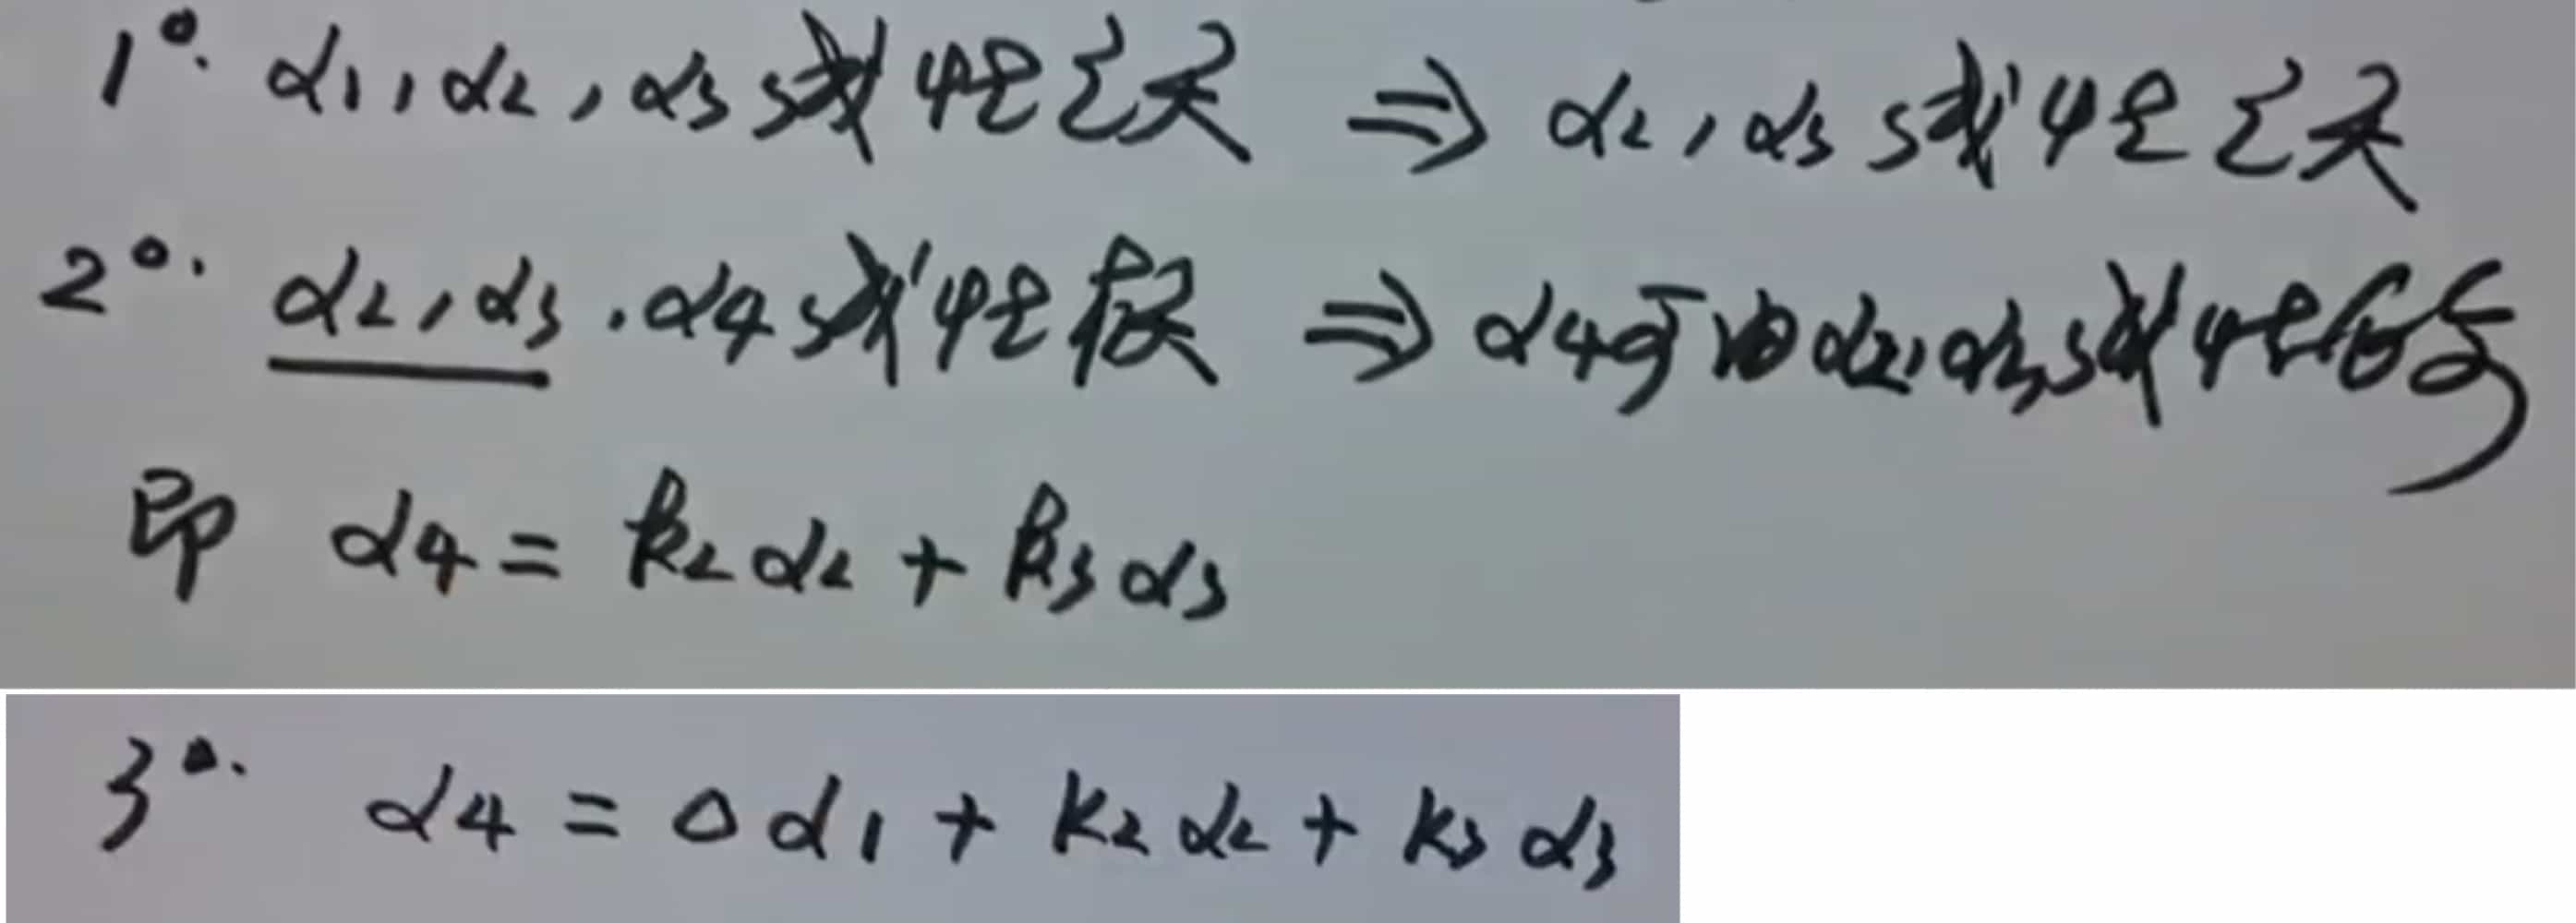 1°. α1, α2, α3 线性无关 ⇒ α2, α3 线性无关
2°. α2, α3, α4 线性相关 ⇒ α4可由α2, α3线性表示
即 α4 = k2 α2 + k3 α3
3°. α4 = 0 α1 + k2 α2 + k3 α3